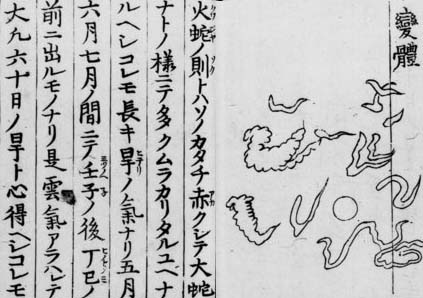 變體
火蛇ノ則トハソノカタチ赤クシテ大蛇
ナトノ樣ニテタヽクムラカリタルユベナ
ルヘシコレモ長キ旱ノ氣ナリ五月
六月七月ノ間ニテ壬子ノ後丁巳ノ
前ニ出ルモノナリ是雲氣アラハレテ
大九六十日ノ旱ト心得ヘシコレモ